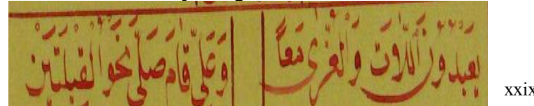 يَعْبُدُونَ اللَّاتَ وَالْعُزَّى مَعًا وَعَلِيٌّ قَامَ صَلَّى نَحْوَ الْقِبْلَتَيْنِ xxix